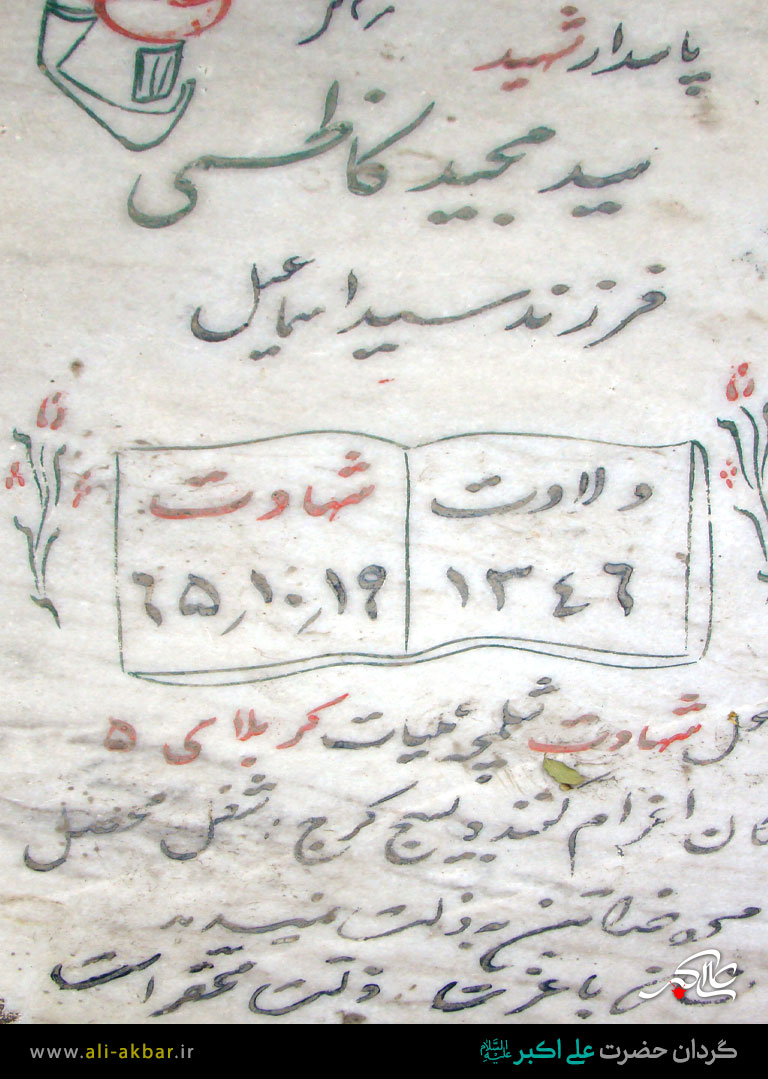 پاسدار شهید
سید مجید کاظمی
فرزند سید اسماعیل
ولادت
۱۳۴۶
شهادت
۶۵٫۱۰٫۱۹
محل شهادت شلمچه عملیات کربلای ۵
اعزام کننده بسیج کرج : شغل محصل
تن به ذلت نمیدهد
با عزت ذلت محقر است
علی اکبر
گردان حضرت علی اکبر علیه السلام
www.ali-akbar.ir